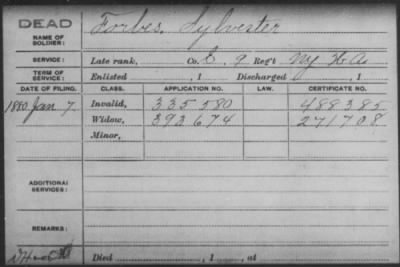 DEAD Forbes, Sylvester
NAME OF SOLDIER:
SERVICE: Late rank, Co. C, 9 Reg't NY H A
TERM OF SERVICE: Enlisted , 1 Discharged , 1
DATE OF FILING. CLASS. APPLICATION NO. LAW. CERTIFICATE NO.
1880 Jan 7. Invalid, 335 580 488385
Widow, 392674 271708
Minor,
ADDITIONAL SERVICES:
REMARKS:
Died , 1 , at